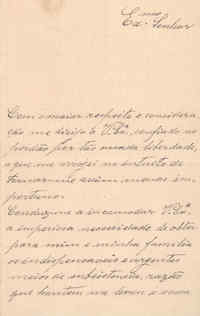 Exmo
Senhor
Com o maior respeito e considera
ção me dirijo a V. Exa, confiado no
perdão por tão ousada liberdade,
a que me no intuito de
tornar-me assim menos im
portuno.
Conduz-me a incommodar V. Exa
a imperiosa necessidade de obter
para mim e minha familia
os indispensaveis e urgentes
meios de subsistencia, razão
que tambem me